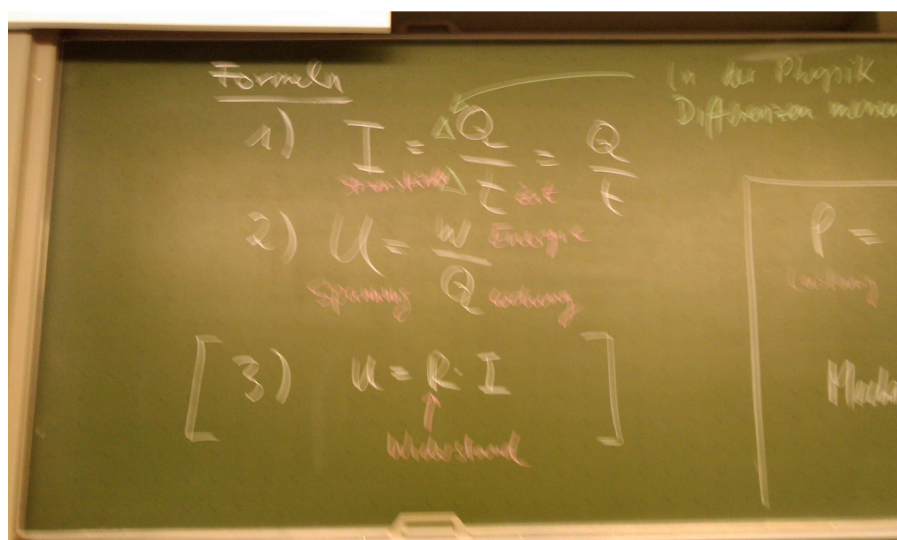 Formeln
In der Physik
Differenzen
1) I = ΔQ/Δt = Q/t
Stromstärke Zeit
2) U = W/Q
Energie
Spannung Ladung
P =
Leistung
[3) U = R · I]
↑
Widerstand